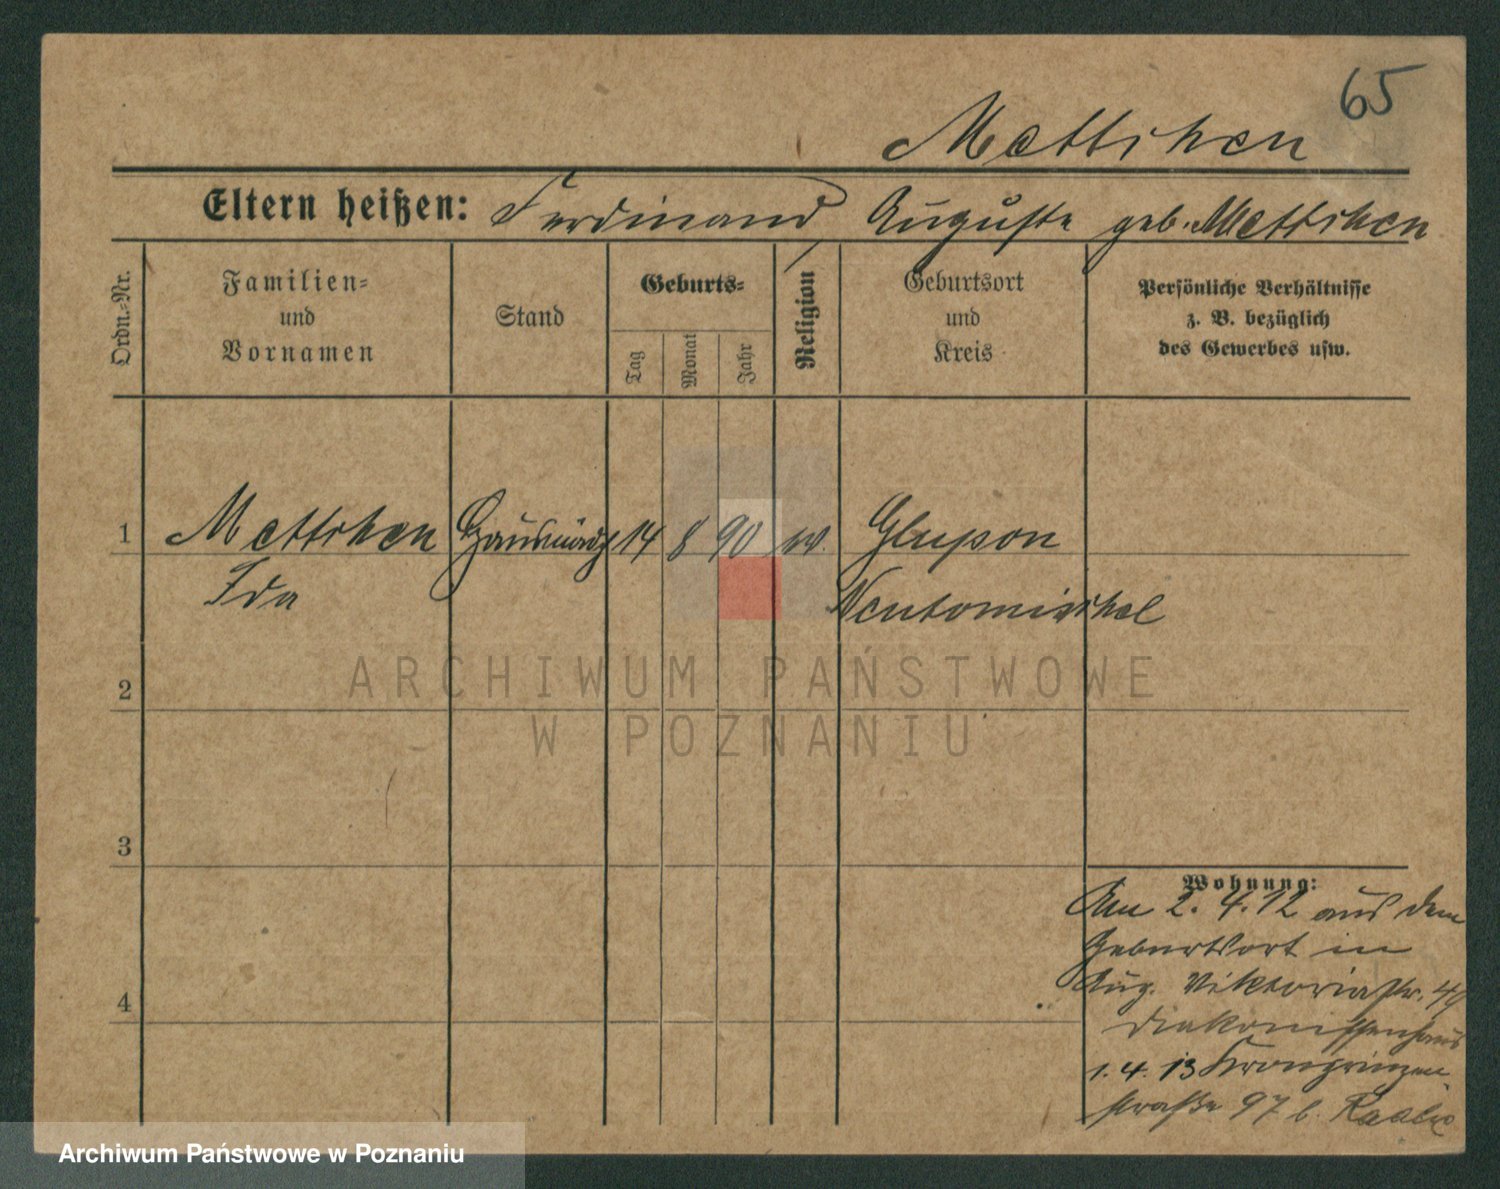 65
Mettchen
Eltern heißen: Ferdinand, Auguste geb. Mettchen
Ordn.-Nr.
Familien-
und
Vornamen
Stand
Geburts-
Tag
Monat
Jahr
Religion
Geburtsort
und
Kreis
Persönliche Verhältnisse
z. B. bezüglich
des Gewerbes usw.
1 Mettchen 14 8 90 Glupon
Ida Neutomischel
2
3
4
Wohnung:
Am 2. 4. 12 aus dem
Geburtsort in
Aug. Viktoriastr.
Diakonissenhaus
1. 4. 13 Kronprinzen
straße 97 b.
ARCHIWUM PAŃSTWOWE
W POZNANIU
Archiwum Państwowe w Poznaniu